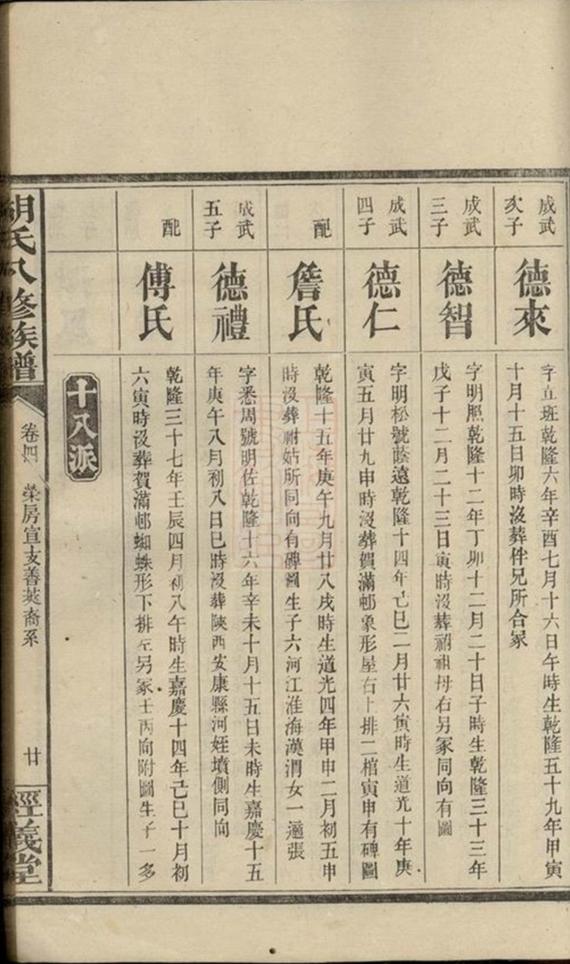 成武
亥子
德來
字立班乾隆六年辛酉七月十六日午時生乾隆五十九年甲寅
十月十五日卯時沒葬伴兄所合冢
成武
三子
德智
字明照乾隆十二年丁卯十二月二十日子時生乾隆三十三年
戊子十二月二十三日寅時沒葬祔祖母右另冢同向有圖
成武
四子
德仁
字明松號蔭遠乾隆十四年己巳二月廿六寅時生道光十年庚
寅五月廿九申時沒葬賀滿邨象形屋右上排二棺寅申有碑圖
配
詹氏
乾隆十五年庚午九月廿八戌時生道光四年甲申二月初五申
時沒葬祔姑所同向有碑圖生子六河江淮海漢渭女一適張
成武
五子
德禮
字悉周號明佐乾隆十六年辛未十月十五日未時生嘉慶十五
年庚午八月初八日巳時沒葬陝西安康縣河姪墳側同向
配
傅氏
乾隆三十七年壬辰四月初八午時生嘉慶十四年己巳十月初
六寅時沒葬賀滿邨蜘蛛形下排左另冢壬丙向附圖生子一多
十八派
胡氏八修族譜
卷四
榮房宣支善英裔系
廿
經義堂